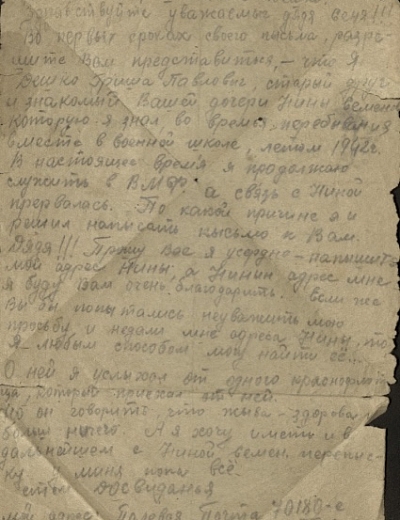 Здравствуйте уважаемый дядя Сеня!!!
Во первых строках своего письма, разре-
шите Вам представится, – что я
Гриша Павлович, старый друг
и знакомый Вашей дочери Нины Семен
которую я знал, во время пребывания
вместе в военной школе, летом 1942г.
В настоящее время я продолжаю
служить в ВМФ, а связь с Ниной
прервалась. По какой причине я и
решил написать письмо к Вам.
Дядя!!! Прошу Вас я усердно – напишите
мой адрес Нины, а Нинин адрес мне
я буду Вам очень благодарить. Если же
Вы бы попытались неуважить мою
просьбу и недали мне адреса Нины, то
я любым способом могу найти её...
О ней я услыхал от одного краснофлот-
ца, который приехал от неё.
он говорить, что жыва – здорова и
ничего. А я хочу иметь и в
дальнейшем с Ниной Семен. переписку
У меня пока всё.
Досвиданья
адрес: Полевая Почта 70180-е